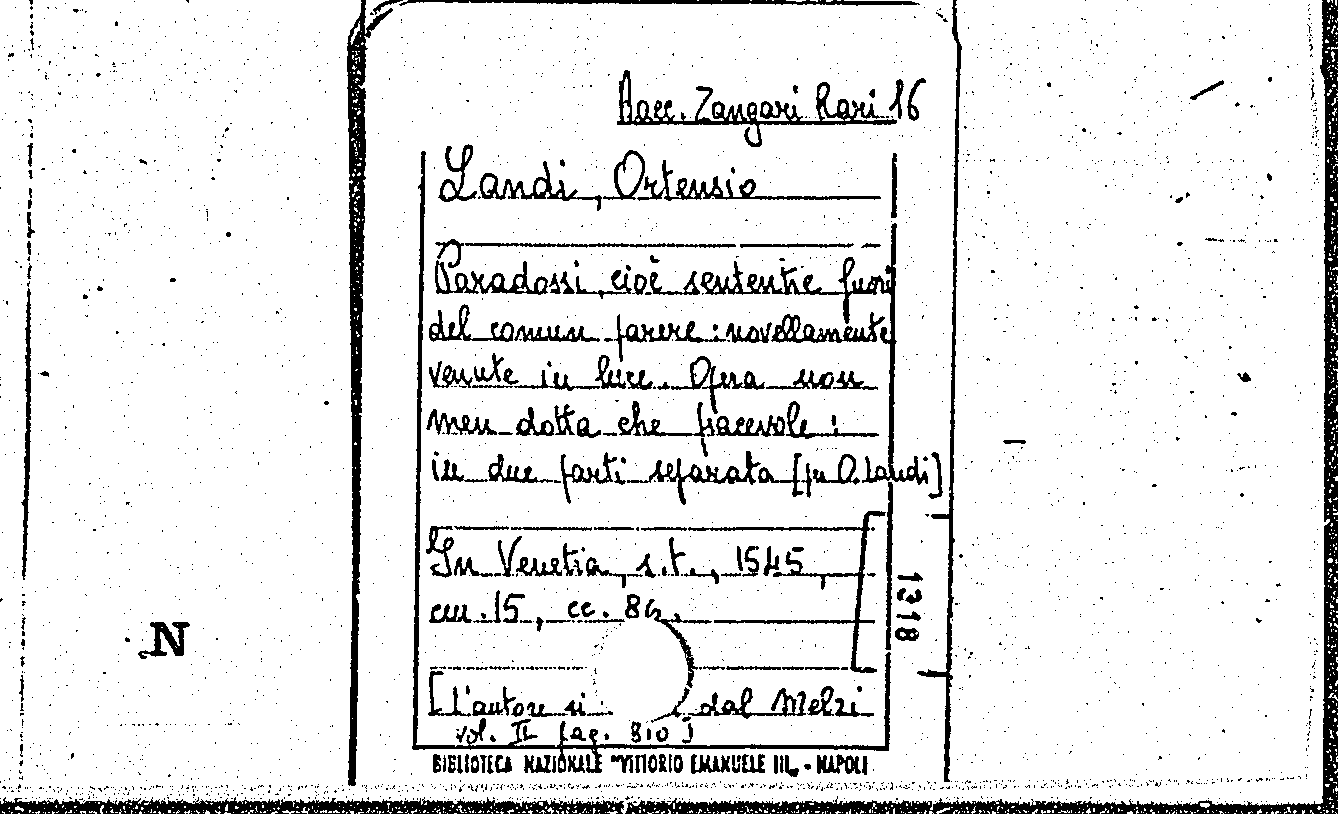 Racc. Zangari Rari 16
Landi, Ortensio
Paradossi, cioè sententie fuori
del comun parere: novellamente
venute in luce. Opera non
men dotta che piacevole:
in due parti separata [per O. Landi]
In Venetia, s.t., 1545,
cm. 15, cc. 84.
[L'autore si dal Melzi
vol. II pag. 310]
BIBLIOTECA NAZIONALE "VITTORIO EMANUELE III„ - NAPOLI
1318
N